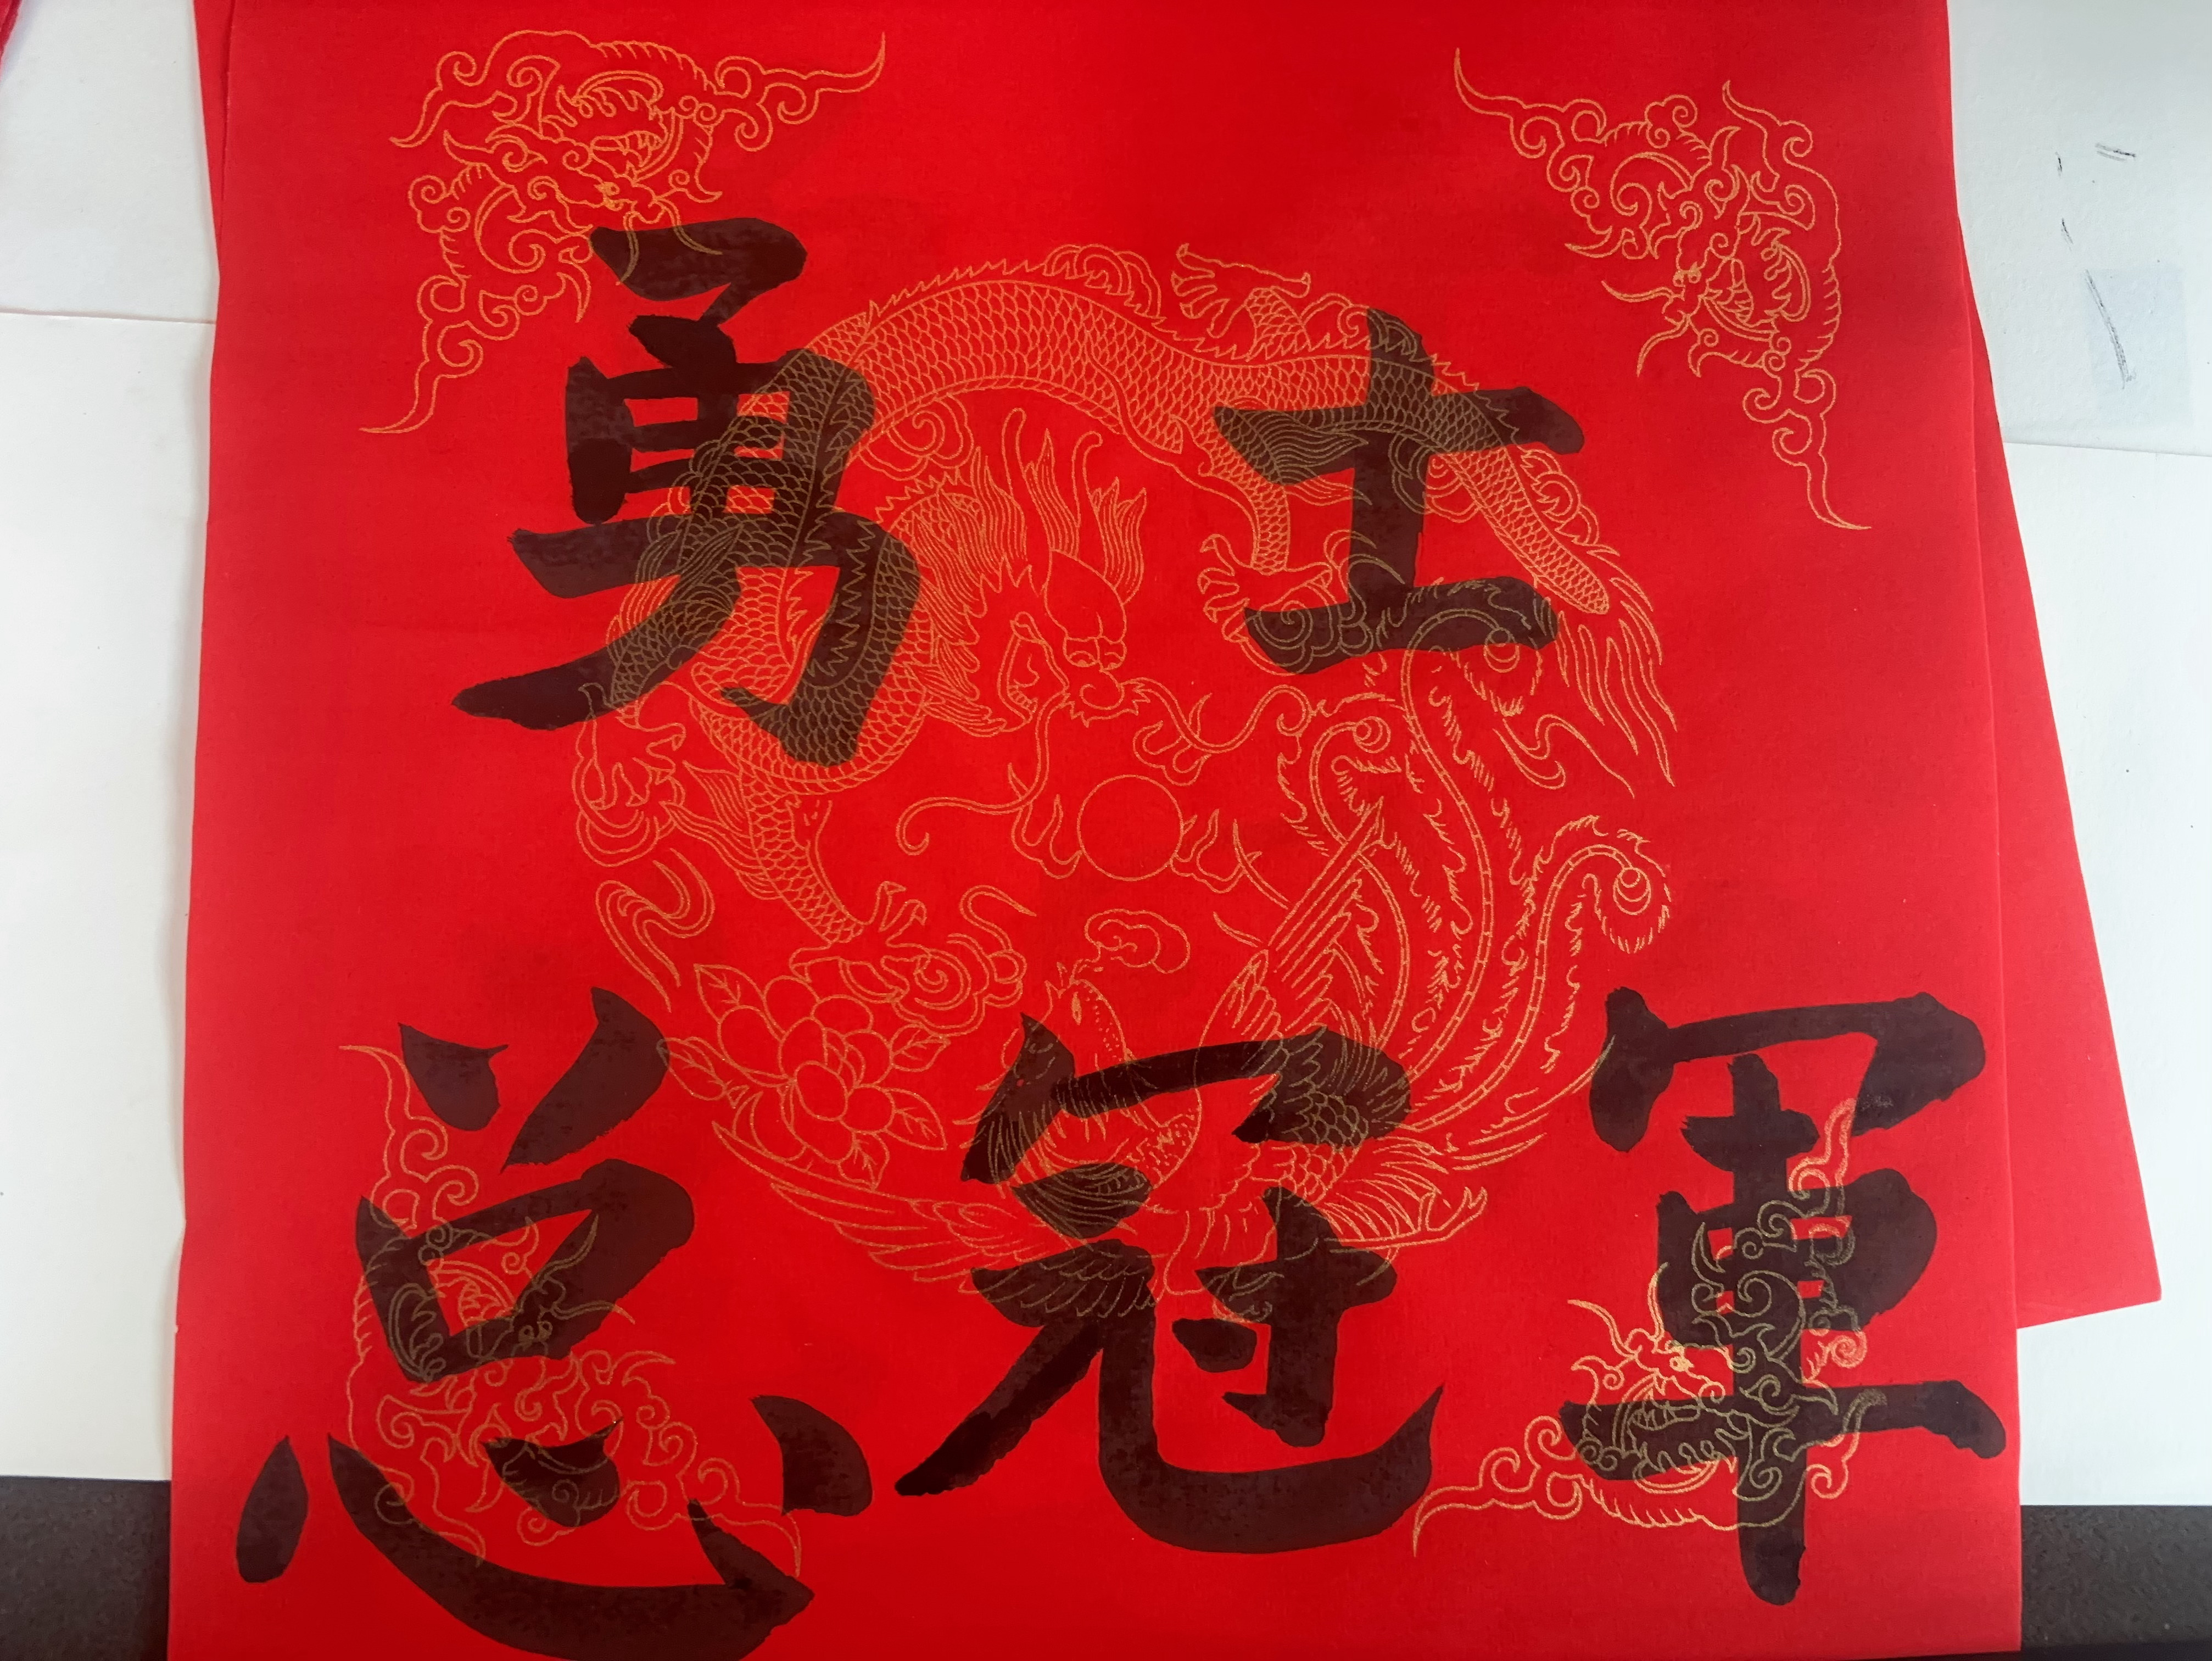 勇士
总冠軍